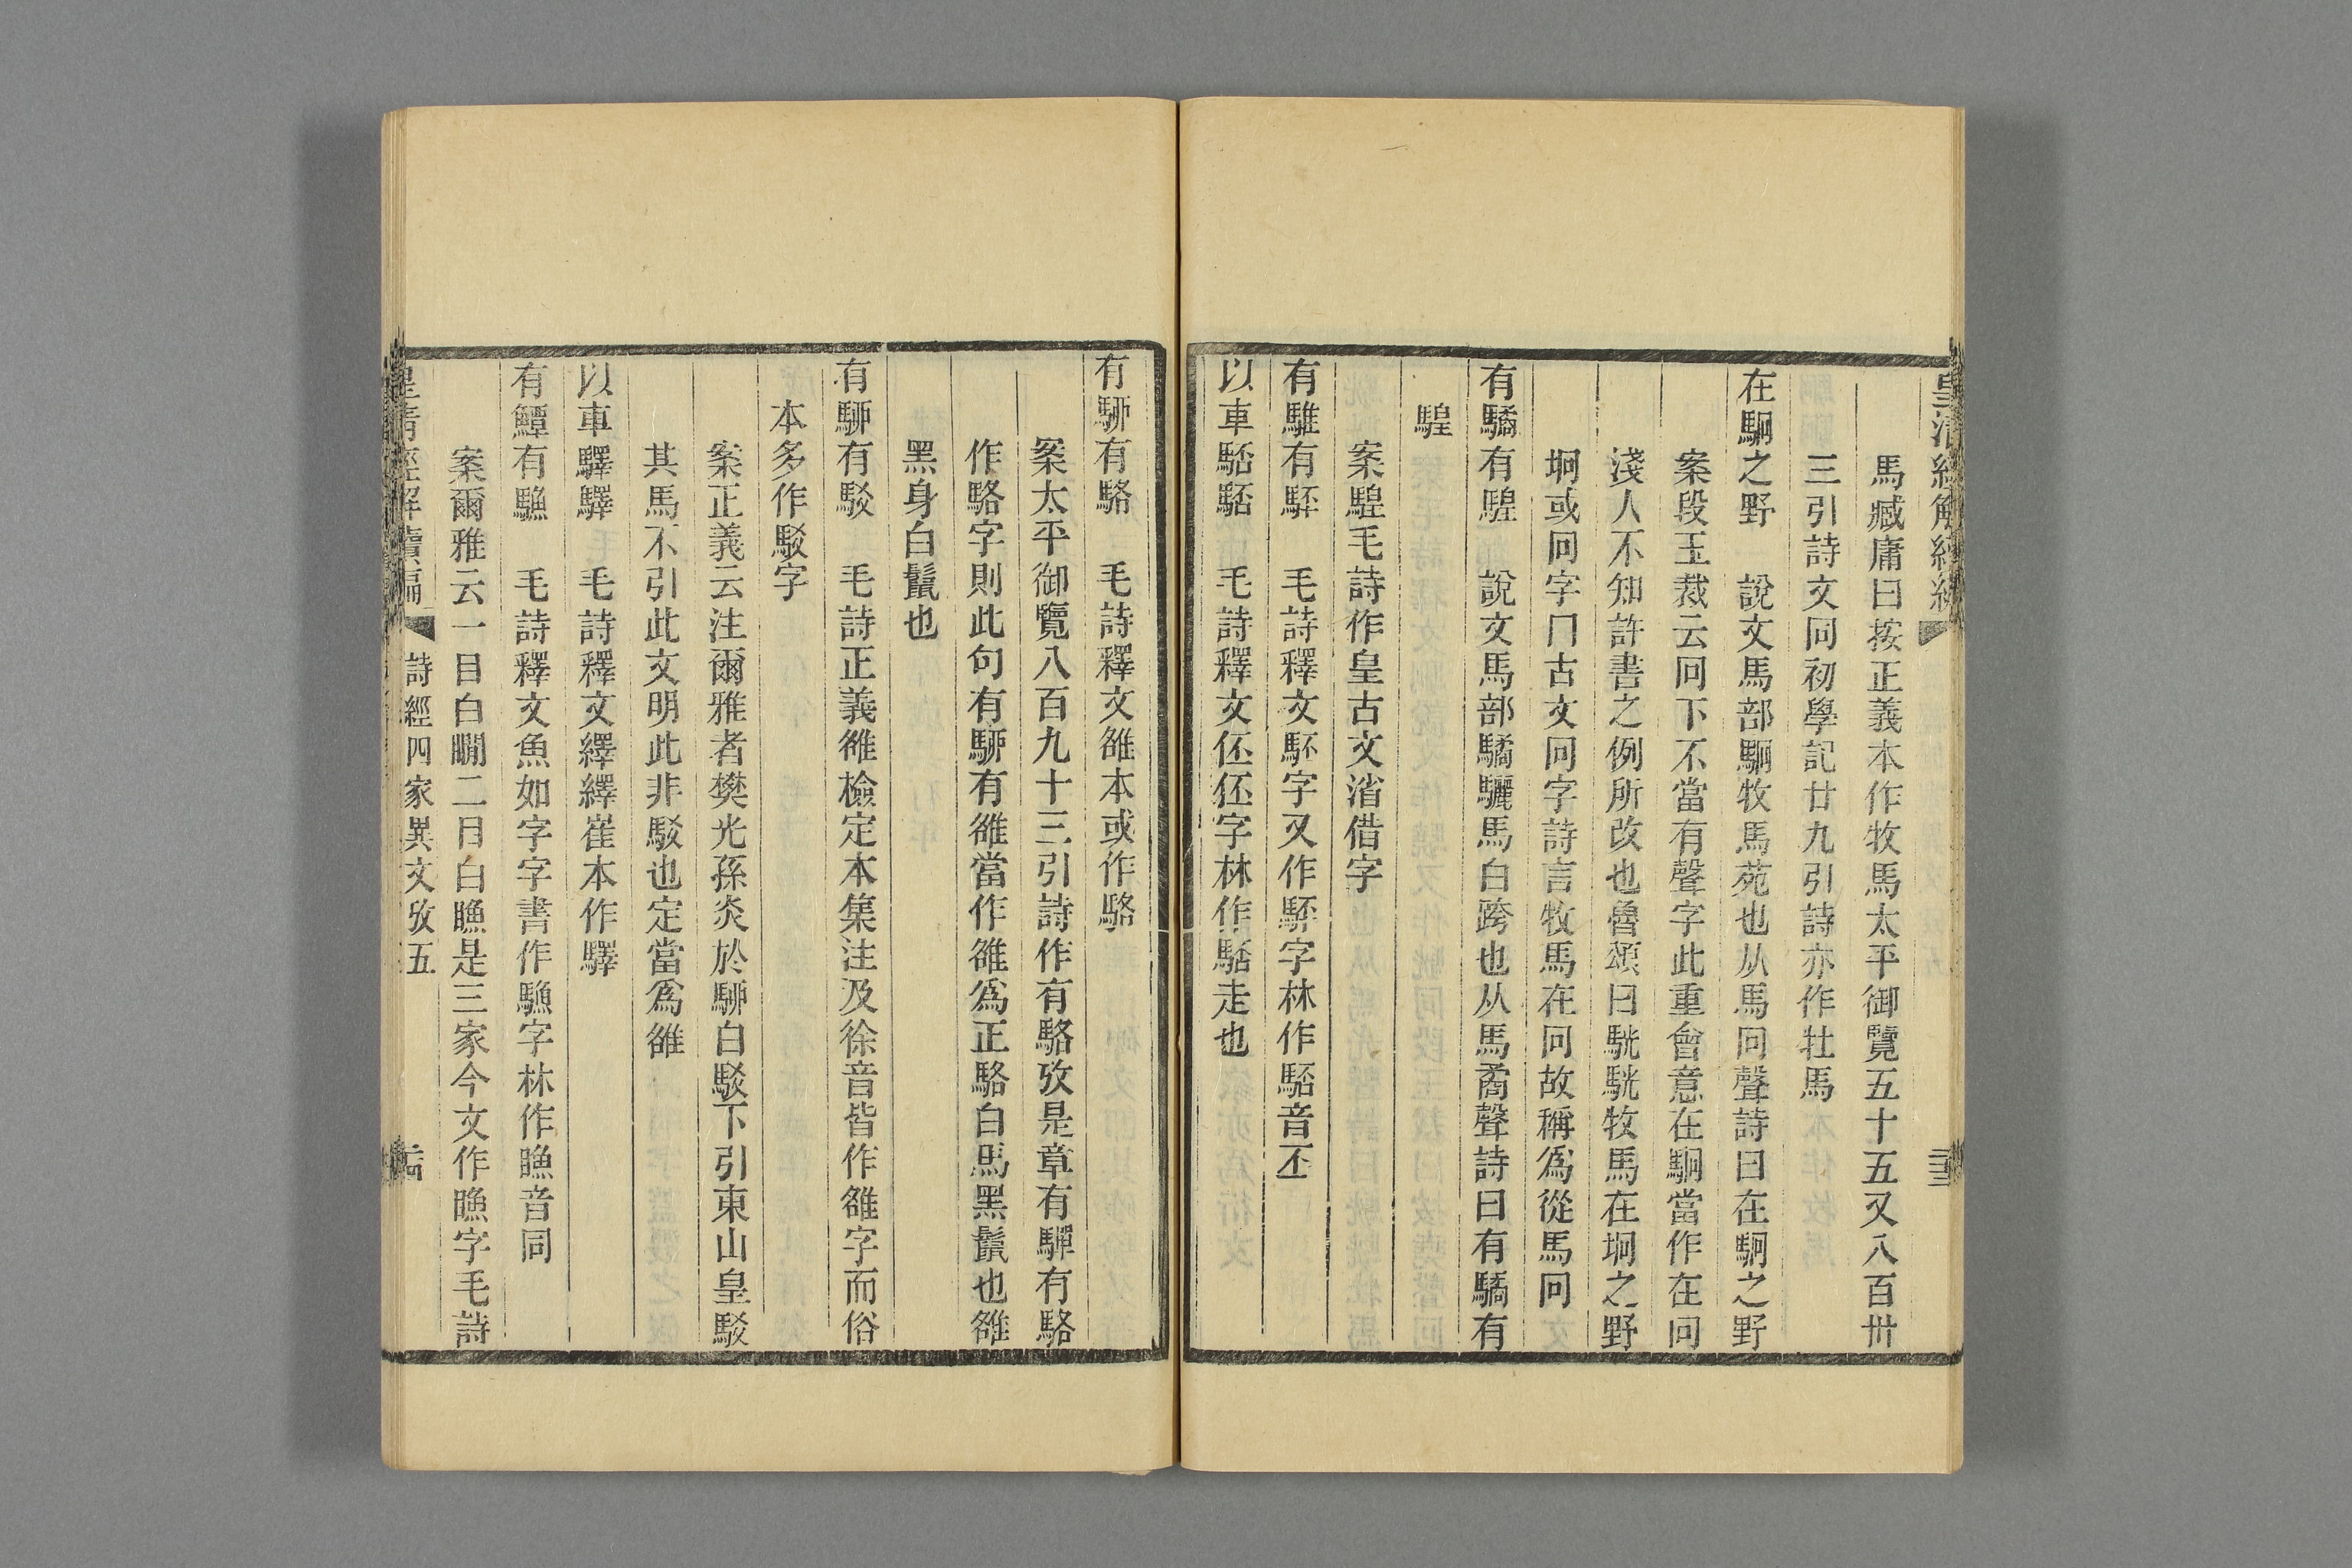 皇清經解續編
馬臧庸曰按正義本作牧馬太平御覽五十五又八百卅
三引詩文同初學記廿九引詩亦作牡馬
在駉之野　說文馬部駉牧馬苑也从馬冋聲詩曰在駉之野
案段玉裁云冋下不當有聲字此重會意在駉當作在冋
淺人不知許書之例所改也魯頌曰駫駫牧馬在坰之野
坰或冋字冂古文冋字詩言牧馬在冋故稱爲從馬冋
有驕有騜　說文馬部驕驪馬白跨也从馬矞聲詩曰有驕有
騜
案騜毛詩作皇古文渻借字
有騅有駓　毛詩釋文駓字又作駓字林作駓音丕
以車駓駓　毛詩釋文伾伾字林作駓走也
有驒有駱　毛詩釋文雒本或作駱
案太平御覽八百九十三引詩作有駱攷是章有驒有駱
作駱字則此句有駵有雒當作雒爲正駱白馬黑鬛也雒
黑身白鬛也
有駵有駁　毛詩正義雒檢定本集注及徐音皆作雒字而俗
本多作駁字
案正義云注爾雅者樊光孫炎於駵白駁下引東山皇駁
其馬不引此文明此非駁也定當爲雒
以車驛驛　毛詩釋文繹繹崔本作驛
有驔有䲣　毛詩釋文魚如字字書作䲣字林作䁩音同
案爾雅云一目白瞯二目白䁩是三家今文作䁩字毛詩
皇清經解續編　詩經四家異文攷五